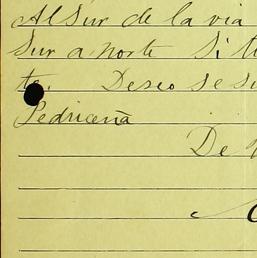 Al Sur de la via
Sur a norte Si
te. Deseo se
Pedriceña
De